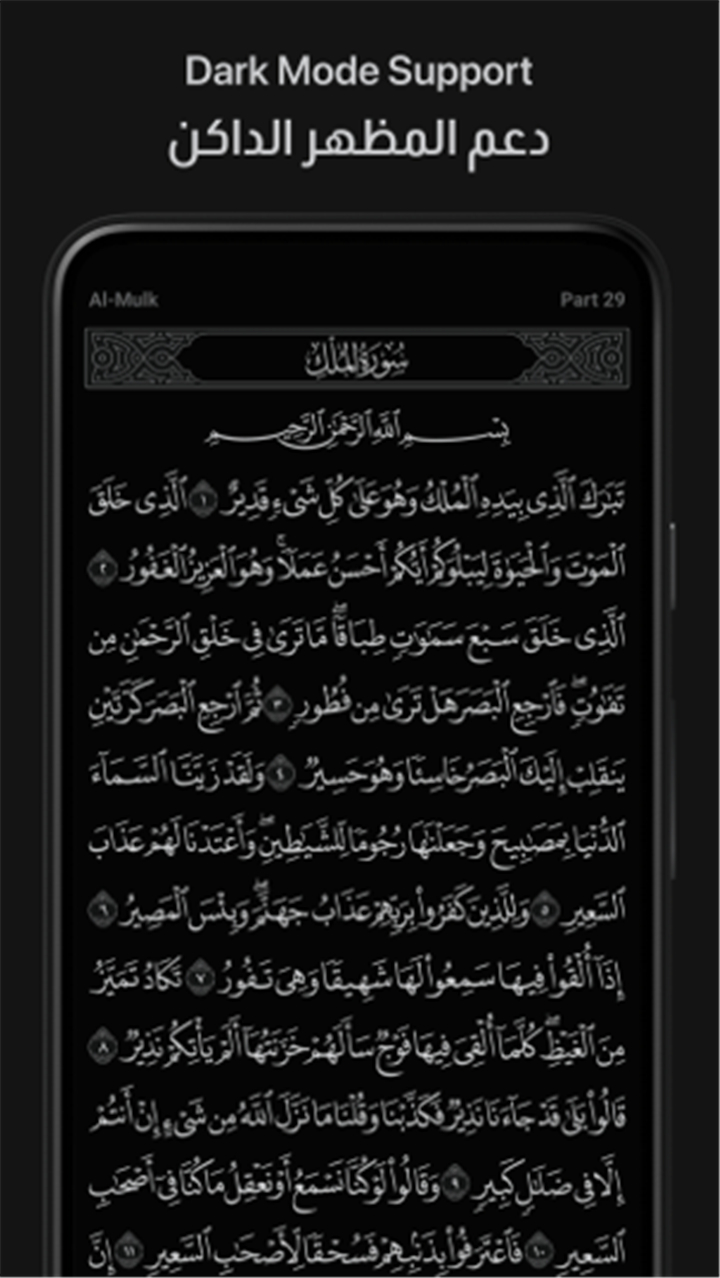 Dark Mode Support
دعم المظهر الداكن
Al-Mulk Part 29
سُورَةُ المُلْكِ
بِسْمِ ٱللَّهِ ٱلرَّحْمَٰنِ ٱلرَّحِيمِ
تَبَٰرَكَ ٱلَّذِى بِيَدِهِ ٱلْمُلْكُ وَهُوَ عَلَىٰ كُلِّ شَىْءٍ قَدِيرٌ ١ ٱلَّذِى خَلَقَ
ٱلْمَوْتَ وَٱلْحَيَوٰةَ لِيَبْلُوَكُمْ أَيُّكُمْ أَحْسَنُ عَمَلًا ۚ وَهُوَ ٱلْعَزِيزُ ٱلْغَفُورُ ٢
ٱلَّذِى خَلَقَ سَبْعَ سَمَٰوَٰتٍ طِبَاقًا ۖ مَّا تَرَىٰ فِى خَلْقِ ٱلرَّحْمَٰنِ مِن
تَفَٰوُتٍ ۖ فَٱرْجِعِ ٱلْبَصَرَ هَلْ تَرَىٰ مِن فُطُورٍ ٣ ثُمَّ ٱرْجِعِ ٱلْبَصَرَ كَرَّتَيْنِ
يَنقَلِبْ إِلَيْكَ ٱلْبَصَرُ خَاسِئًا وَهُوَ حَسِيرٌ ٤ وَلَقَدْ زَيَّنَّا ٱلسَّمَآءَ
ٱلدُّنْيَا بِمَصَٰبِيحَ وَجَعَلْنَٰهَا رُجُومًا لِّلشَّيَٰطِينِ ۖ وَأَعْتَدْنَا لَهُمْ عَذَابَ
ٱلسَّعِيرِ ٥ وَلِلَّذِينَ كَفَرُوا۟ بِرَبِّهِمْ عَذَابُ جَهَنَّمَ ۖ وَبِئْسَ ٱلْمَصِيرُ ٦
إِذَآ أُلْقُوا۟ فِيهَا سَمِعُوا۟ لَهَا شَهِيقًا وَهِىَ تَفُورُ ٧ تَكَادُ تَمَيَّزُ
مِنَ ٱلْغَيْظِ ۖ كُلَّمَآ أُلْقِىَ فِيهَا فَوْجٌ سَأَلَهُمْ خَزَنَتُهَآ أَلَمْ يَأْتِكُمْ نَذِيرٌ ٨
قَالُوا۟ بَلَىٰ قَدْ جَآءَنَا نَذِيرٌ فَكَذَّبْنَا وَقُلْنَا مَا نَزَّلَ ٱللَّهُ مِن شَىْءٍ إِنْ أَنتُمْ
إِلَّا فِى ضَلَٰلٍ كَبِيرٍ ٩ وَقَالُوا۟ لَوْ كُنَّا نَسْمَعُ أَوْ نَعْقِلُ مَا كُنَّا فِىٓ أَصْحَٰبِ
ٱلسَّعِيرِ ١٠ فَٱعْتَرَفُوا۟ بِذَنۢبِهِمْ فَسُحْقًا لِّأَصْحَٰبِ ٱلسَّعِيرِ ١١ إِنَّ